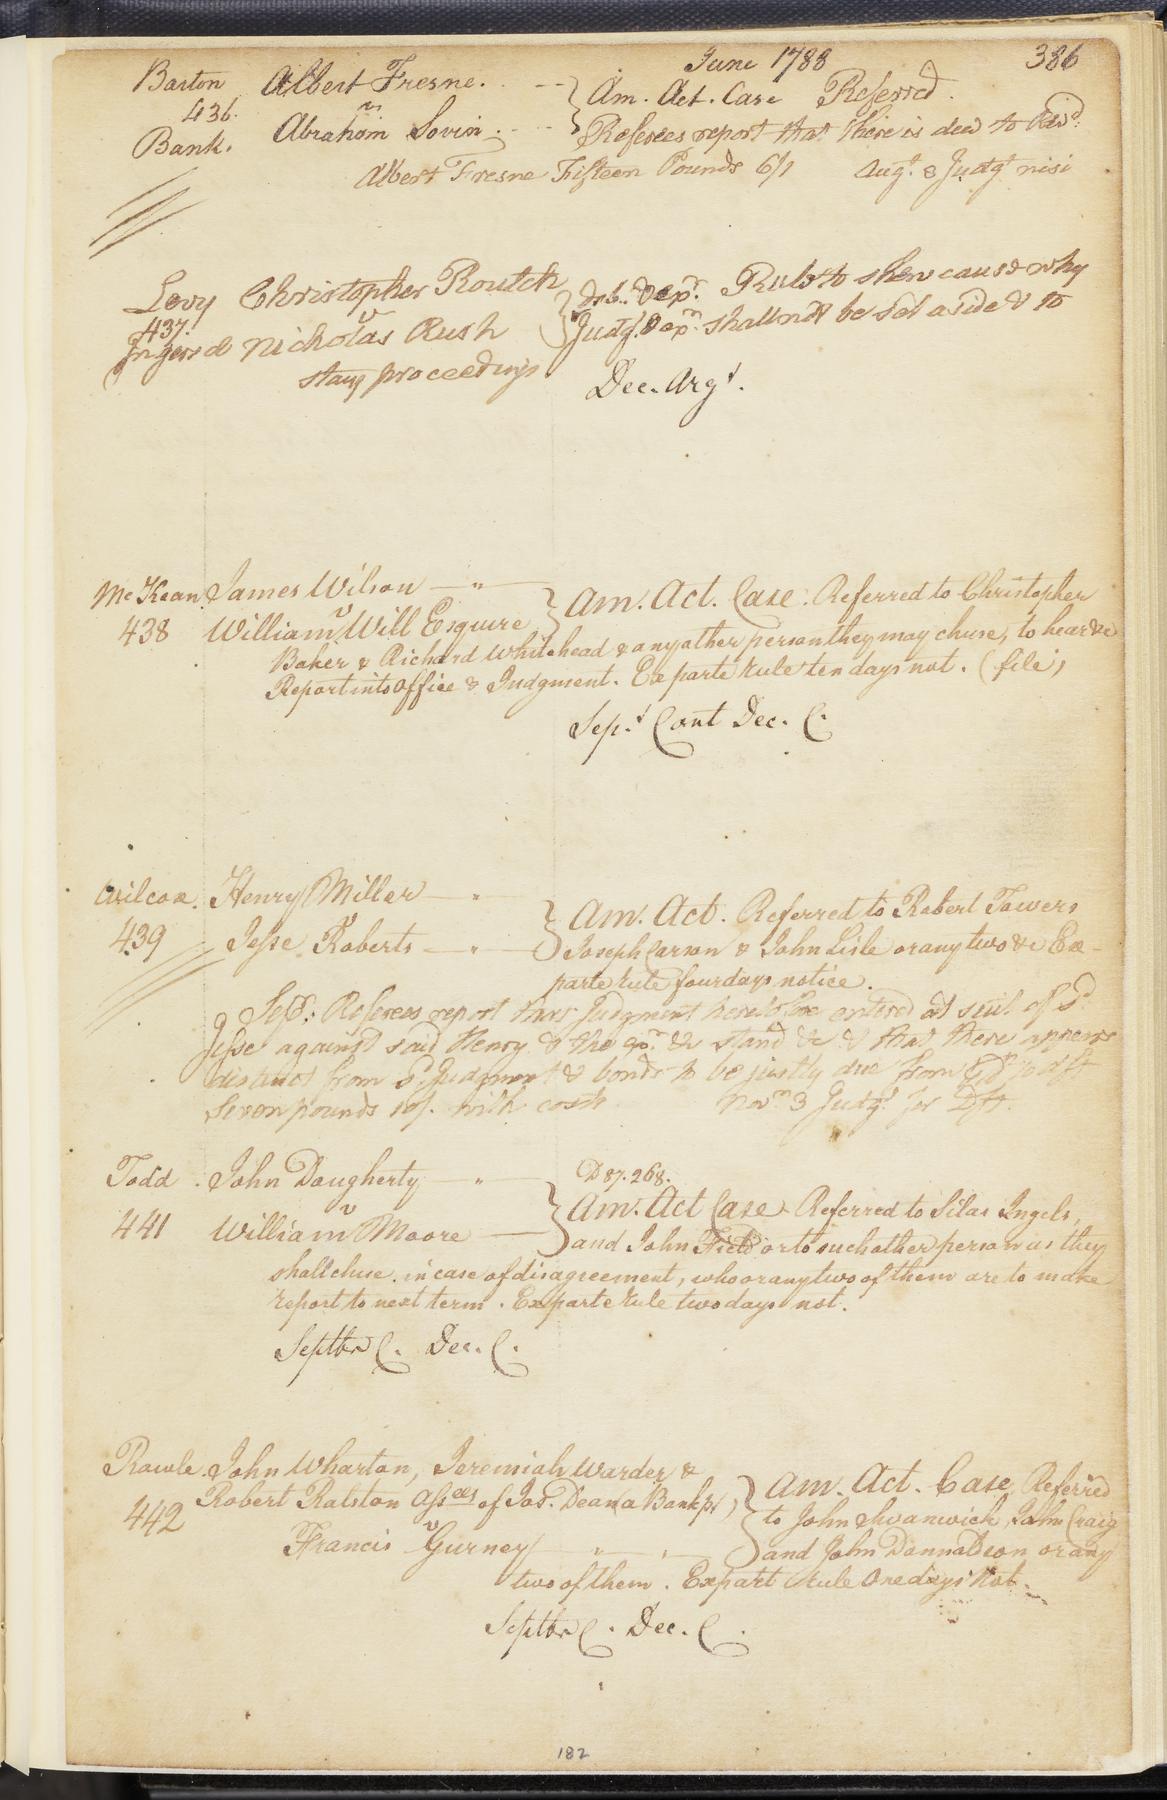 June 1788 386
Barton Albert Fresne. Am. Act. Case Referred.
436. v
Bank. Abraham Sovin. Referees report that there is due to said
Albert Fresne Fifteen Pounds 6/1 Augt. 8 Judgt nisi
Levy Christopher Routch Deb. Rule to shew cause why
437. v
Nicholas Rush Judgt. shall not be set aside & to
stay proceedings
Dec. Argt.
McKean. James Wilson Am. Act. Case. Referred to Christopher
438 William v Will Esquire
Baker & Richard Whitehead & any other person they may chuse, to hear &c
Report into Office & Judgment. Ex parte Rule ten days not. (file)
Sept. Cont Dec. C.
Wilcox. Henry Miller Am. Act. Referred to Robert Towers
439 Jesse v Roberts Joseph Carson & John Lisle or any two &c Ex-
parte Rule four days notice.
Sept: Referees report that Judgment heretofore entered at suit of sd.
Jesse against said Henry & the &c stand &c & that there appears
distinct from sd. Judgment & bonds to be justly due from to
Seven pounds 10/. with costs Novr. 3 Judgt. for Dft.
Todd. John Daugherty D 87.268.
Am. Act Case Referred to Silas Ingels,
441 William v Moore and John Field or to such other person as they
shall chuse in case of disagreement, who or any two of them are to make
report to next term. Ex parte Rule two days not.
Septbr C. Dec. C.
Rawle. John Wharton, Jeremiah Warder &
Robert Ralston Assees of Jos. Dean (a Bankpt) Am. Act. Case, Referred
442 to John Swanwick, John Craig
Francis v Gurney and John Donnaldson or any
two of them. Expart Rule One days Not.
Septbr C. Dec. C.
182